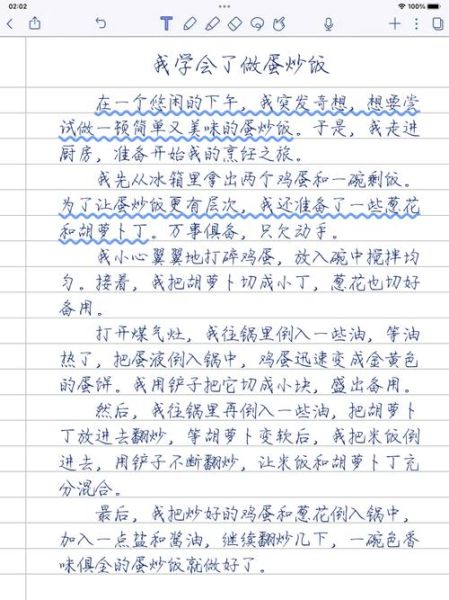 02:02
100%
我学会了做蛋炒饭
在一个悠闲的下午，我突发奇想，想要尝
试做一顿简单又美味的蛋炒饭。于是，我走进
厨房，准备开始我的烹饪之旅。
我先从冰箱里拿出两个鸡蛋和一碗剩饭。
为了让蛋炒饭更有层次，我还准备了一些葱花
和胡萝卜丁。万事俱备，只欠动手。
我小心翼翼地打碎鸡蛋，放入碗中搅拌均
匀。接着，我把胡萝卜切成小丁，葱花也切好
备用。
打开煤气灶，我往锅里倒入一些油，等油
热了，把蛋液倒入锅中，鸡蛋迅速变成金黄色
的蛋饼。我用铲子把它切成小块，盛出备用。
然后，我往锅里再倒入一些油，把胡萝卜
丁放进去翻炒，等胡萝卜变软后，我把米饭倒
进去，用铲子不断翻炒，让米饭和胡萝卜丁充
分混合。
最后，我把炒好的鸡蛋和葱花倒入锅中，
加入一点盐和酱油，继续翻炒几下，一碗色香
味俱全的蛋炒饭就做好了。